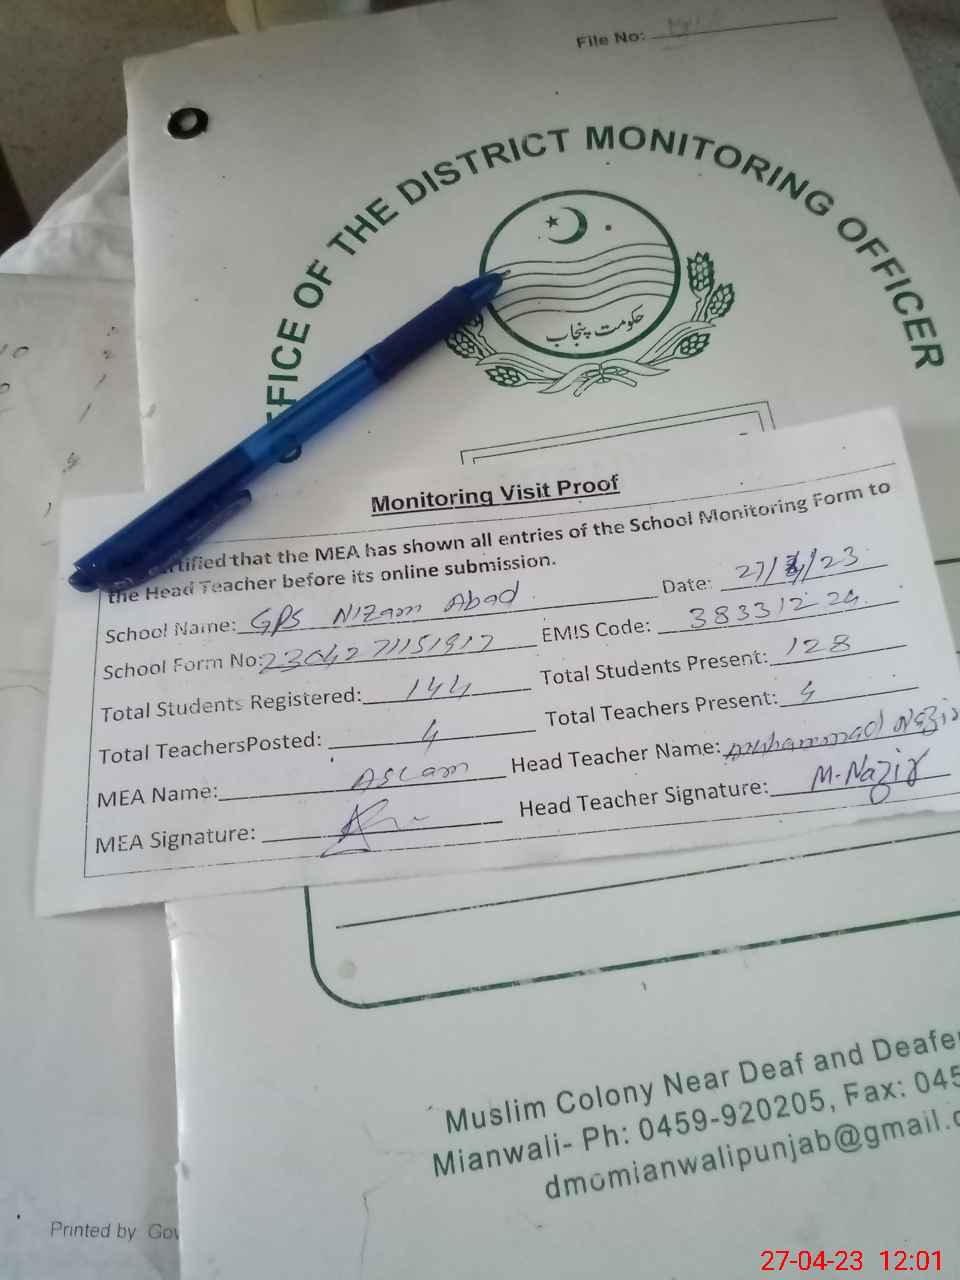 File No:
OFFICE OF THE DISTRICT MONITORING OFFICER
حکومت پنجاب
Monitoring Visit Proof
rtified that the MEA has shown all entries of the School Monitoring Form to
the Head Teacher before its online submission.
School Name: GPS Nizam Abad Date: 27/4/23
School Form No: 2304271151917 EMIS Code: 38331224
Total Students Registered: 144 Total Students Present: 128
Total TeachersPosted: 4 Total Teachers Present: 4
MEA Name: Aslam Head Teacher Name: Muhammad Nazir
MEA Signature: Head Teacher Signature: M.Nazir
Muslim Colony Near Deaf and Deafe
Mianwali- Ph: 0459-920205, Fax: 045
dmomianwalipunjab@gmail.c
Printed by Gov
27-04-23 12:01